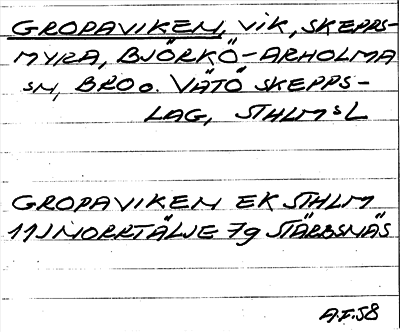 GROPAVIKEN, VIK, SKEPPS-
MYRA, BJÖRKÖ-ARHOLMA
SN, BRO O. VÄTÖ SKEPPS-
LAG, STHLMSL
GROPAVIKEN EK STHLM
11J NORRTÄLJE 7g STÄRBSNÄS
A.F.58